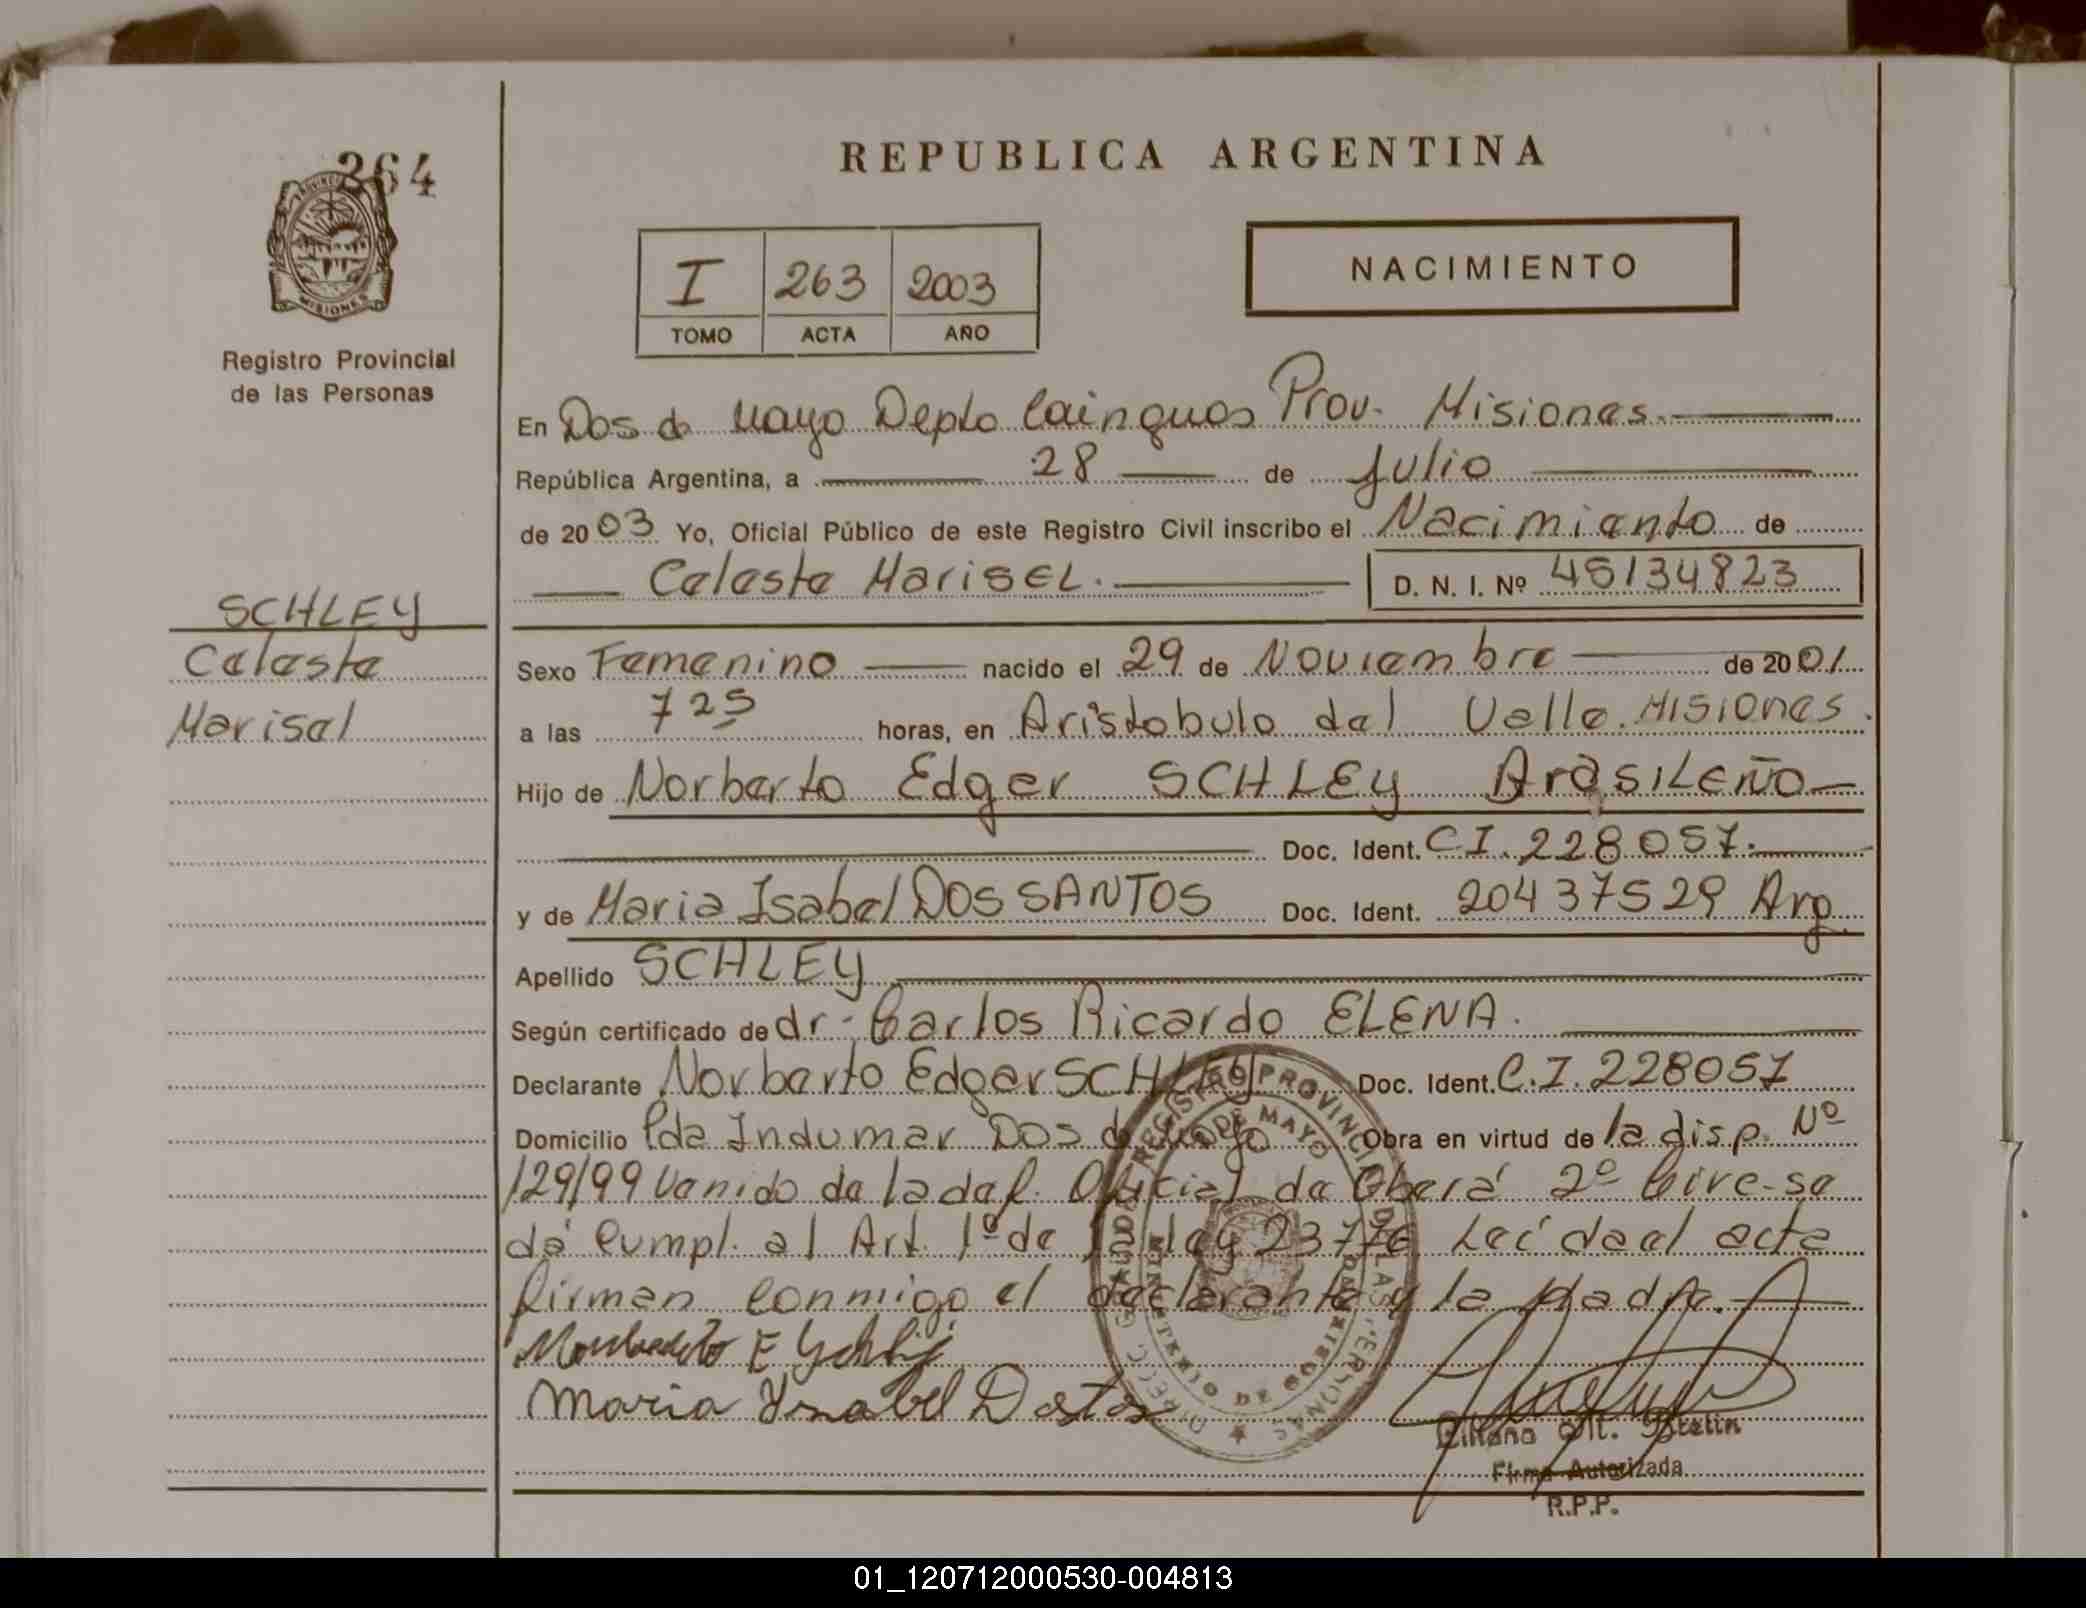 264
REPUBLICA ARGENTINA
PROVINCIA
MISIONES
Registro Provincial
de las Personas
I 263 2003
TOMO ACTA AÑO
NACIMIENTO
En Dos de Mayo Depto Cainguas Prov. Misiones
República Argentina, a 28 de Julio
de 2003 Yo, Oficial Público de este Registro Civil inscribo el Nacimiento de
Celeste Marisel. D. N. I. Nº 45134823
SCHLEY
Celeste
Marisel
Sexo Femenino nacido el 29 de Noviembre de 2001
a las 725 horas, en Aristobulo del Valle. Misiones.
Hijo de Norberto Edger SCHLEY Brasileño
Doc. Ident. C I. 228057.
y de Maria Isabel DOS SANTOS Doc. Ident. 20437529 Arg.
Apellido SCHLEY
Según certificado de dr. Carlos Ricardo ELENA.
Declarante Norberto Edger SCHLEY Doc. Ident. C.I. 228057
Domicilio Pda Indumar Dos de Mayo Obra en virtud de la disp. Nº
129/99 Venido de la def. Oficial de Oberá 2º Circ. se
dá cumpl. al Art. 1º de la ley 23776 Leída el acta
firman conmigo el declarante y la Madre.
Norberto E Schley
Maria Ysabel D
REGISTRO PROVINCIAL DE LAS PERSONAS
DOS DE MAYO
MINISTERIO DE GOBIERNO
Firma Autorizada
R.P.P.
01_120712000530-004813